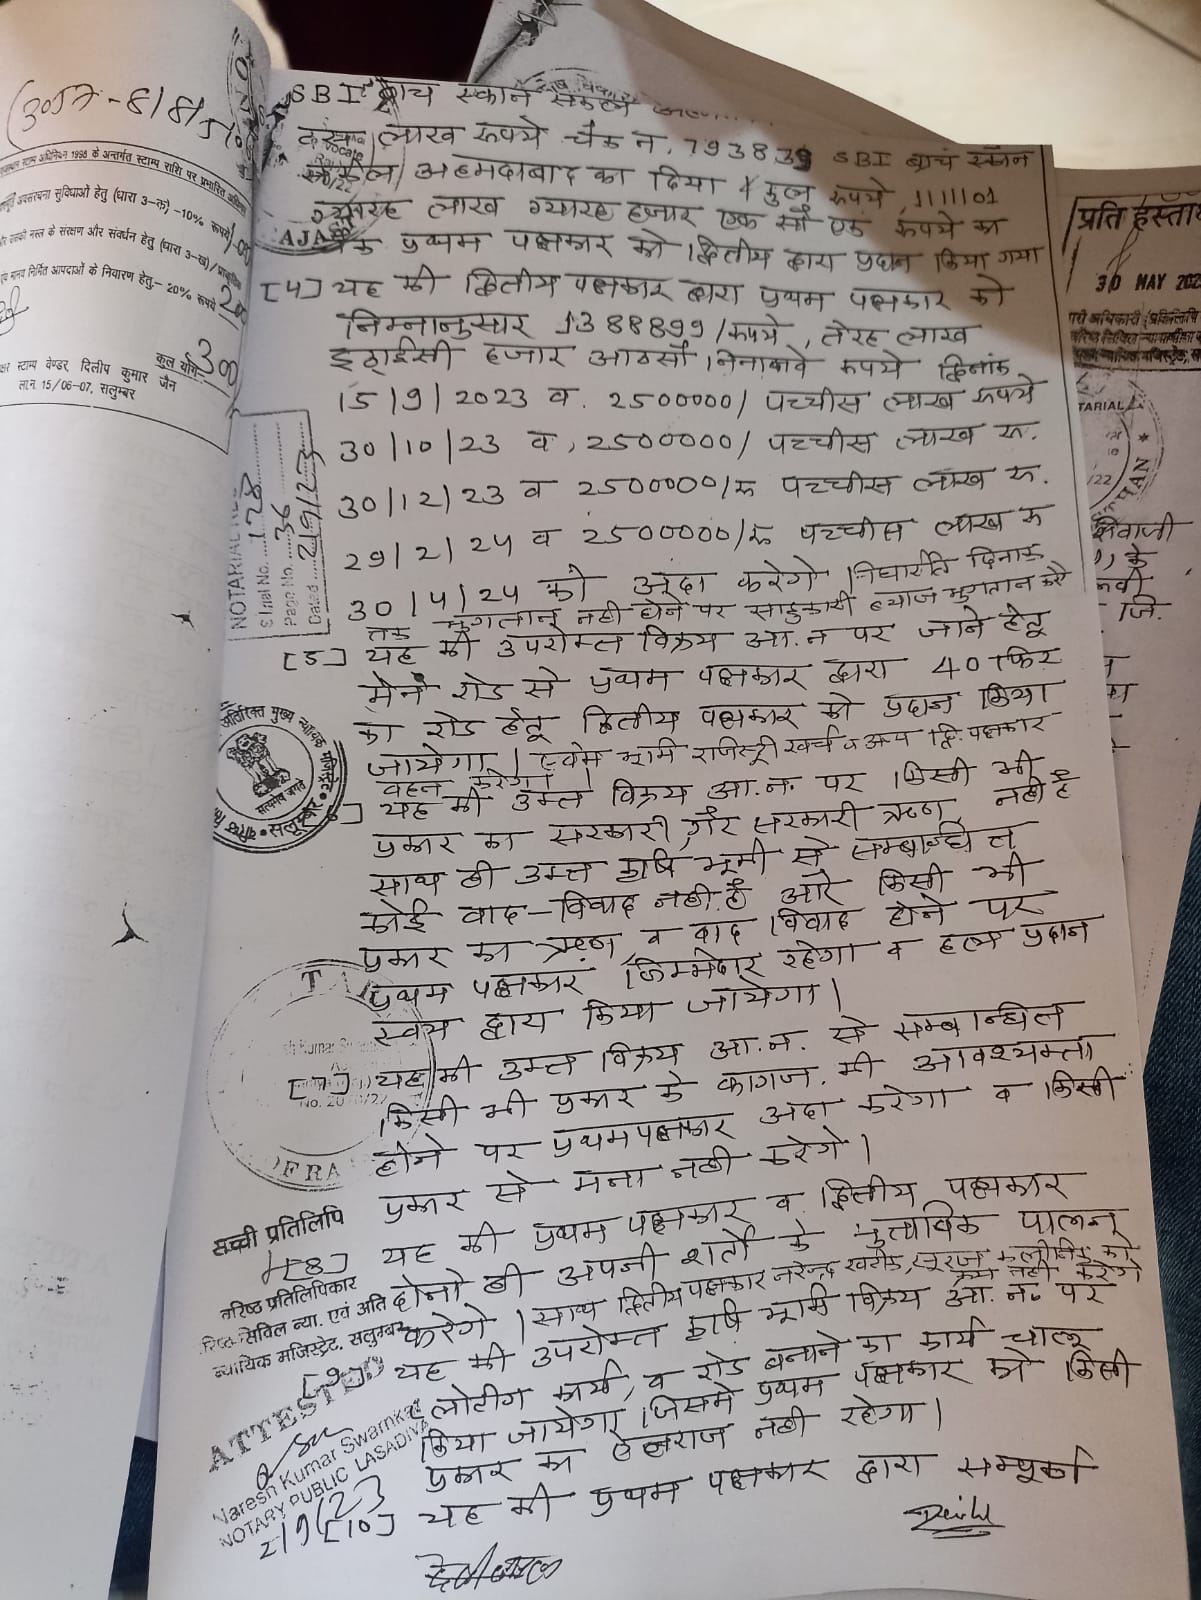 3057-8/8/5/
स्टाम्प अधिनियम 1998 के अन्तर्गत स्टाम्प राशि पर प्रभारित
अवसंरचना सुविधाओं हेतु (धारा 3-क) -10% रूपये
और उसकी नस्ल के संरक्षण और संवर्धन हेतु (धारा 3-ख) /
मानव निर्मित आपदाओं के निवारण हेतु - 20% रूपये
कुल योग 300
स्टाम्प वेण्डर दिलीप कुमार जैन
ला.न. 15/06-07, सलुम्बर
SBI ब्रांच स्कान सर्कल
दस लाख रूपये चैक न. 793839 SBI ब्रांच स्कान
सर्कल अहमदाबाद का दिया कुल रूपये 1111101
ग्यारह लाख ग्यारह हजार एक सौ एक रूपये का
चैक प्रथम पक्षकार को द्वितीय द्वारा प्रदान किया गया
[4] यह की द्वितीय पक्षकार द्वारा प्रथम पक्षकार को
निम्नानुसार 1388899/रूपये, तेरह लाख
इठ्ठाईसी हजार आठसौ निनानवे रूपये दिनांक
15/9/2023 व. 2500000/ पच्चीस लाख रूपये
30/10/23 व, 2500000/ पच्चीस लाख रू.
30/12/23 व 2500000/रू पच्चीस लाख रू.
29/2/24 व 2500000/रू पच्चीस लाख रू
30/4/24 को अदा करेगे निर्धारित दिनांक
तक भुगतान नही होने पर साहुकारी ब्याज भुगतान करे
[5] यह की उपरोक्त विक्रय आ.न पर जाने हेतू
मेन रोड से प्रथम पक्षकार द्वारा 40 फिट
का रोड हेतू द्वितीय पक्षकार को प्रदान किया
जायेगा। एवंम भूमि रजिस्ट्री खर्च व अन्य द्वि. पक्षकार
वहन करेगा।
यह की उक्त विक्रय आ.न. पर किसी भी
प्रकार का सरकारी, गैर सरकारी ऋण नही है
साथ ही उक्त कृषि भूमी से सम्बन्धित
कोई वाद-विवाद नही है और किसी भी
प्रकार का ऋण व वाद विवाद होने पर
प्रथम पक्षकार जिम्मेदार रहेगा व हल प्रदान
स्वंय द्वारा किया जायेगा।
[7] यह की उक्त विक्रय आ.न. से सम्बन्धित
किसी भी प्रकार के कागज की आवश्यक्ता
होने पर प्रथम पक्षकार अदा करेगा व किसी
प्रकार से मना नही करेगे।
[8] यह की प्रथम पक्षकार व द्वितीय पक्षकार
दोनो ही अपनी शर्तो के मुताबिक पालन
करेगे। साथ द्वितीय पक्षकार नरेन्द्र खटीक, सूरज को
क्रय नही करेगे
[9] यह की उपरोक्त कृषि भूमि विक्रय आ.न. पर
प्लोटीग कार्य, व रोड बनाने का कार्य चालू
किया जायेगा जिसमे प्रथम पक्षकार को किसी
प्रकार का ऐतराज नही रहेगा।
[10] यह की प्रथम पक्षकार द्वारा सम्पूर्का
NOTARIAL RE
Serial No. 128
Page No. 36
Dated 2/9/23
AJA
अतिरिक्त मुख्य न्यायिक मजिस्ट्रेट
सत्यमेव जयते
सलूम्बर
No. 20 /22
सच्ची प्रतिलिपि
वरिष्ठ प्रतिलिपिकार
सिविल न्या. एवं अति
न्यायिक मजिस्ट्रेट, सलुम्बर
ATTESTED
Naresh Kumar Swarnkar
NOTARY PUBLIC LASADIYA
2/9/23
प्रति हस्ता
30 MAY 202